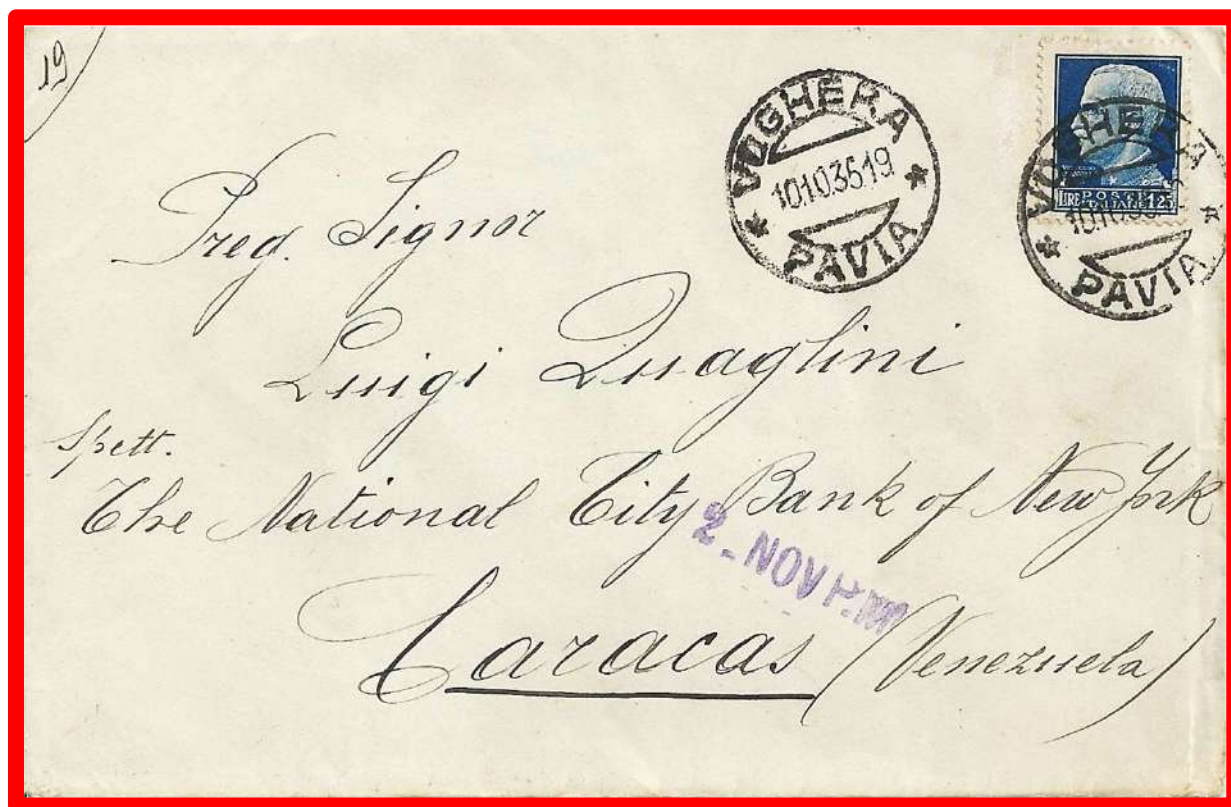 19
VOGHERA
10.10.35 19
PAVIA
LIRE POSTE ITALIANE 1.25
VOGHERA
PAVIA
Preg. Signor
Luigi Quaglini
Spett.
The National City Bank of New York
2 - NOV P.M
Caracas (Venezuela)